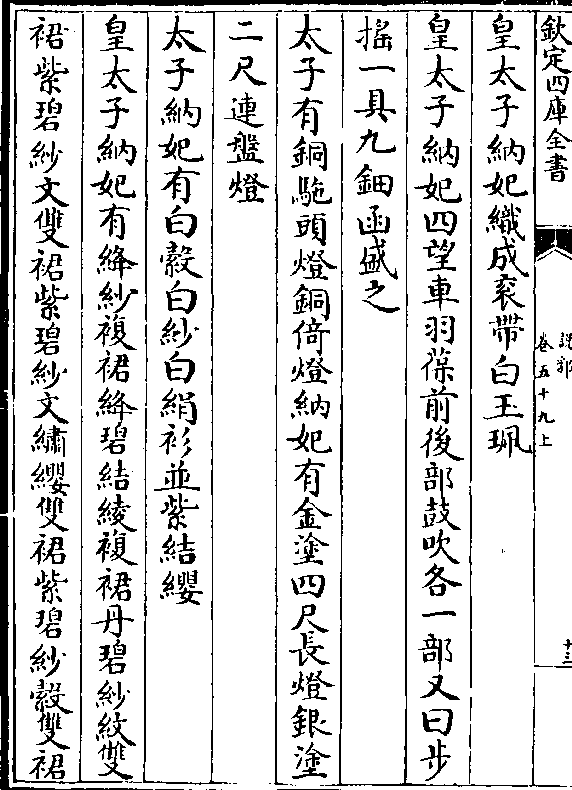 欽定四庫全書
說郛
卷五十九上
十三
皇太子納妃織成衮帶白玉珮
皇太子納妃四望車羽葆前後部鼓吹各一部又曰步
摇一具九鈿函盛之
太子有銅駞頭燈銅倚燈納妃有金塗四尺長燈銀塗
二尺連盤燈
太子納妃有白縠白紗白絹衫並紫結纓
皇太子納妃有絳紗複裙絳碧結綾複裙丹碧紗紋雙
裙紫碧紗文雙裙紫碧紗文繡纓雙裙紫碧紗縠雙裙